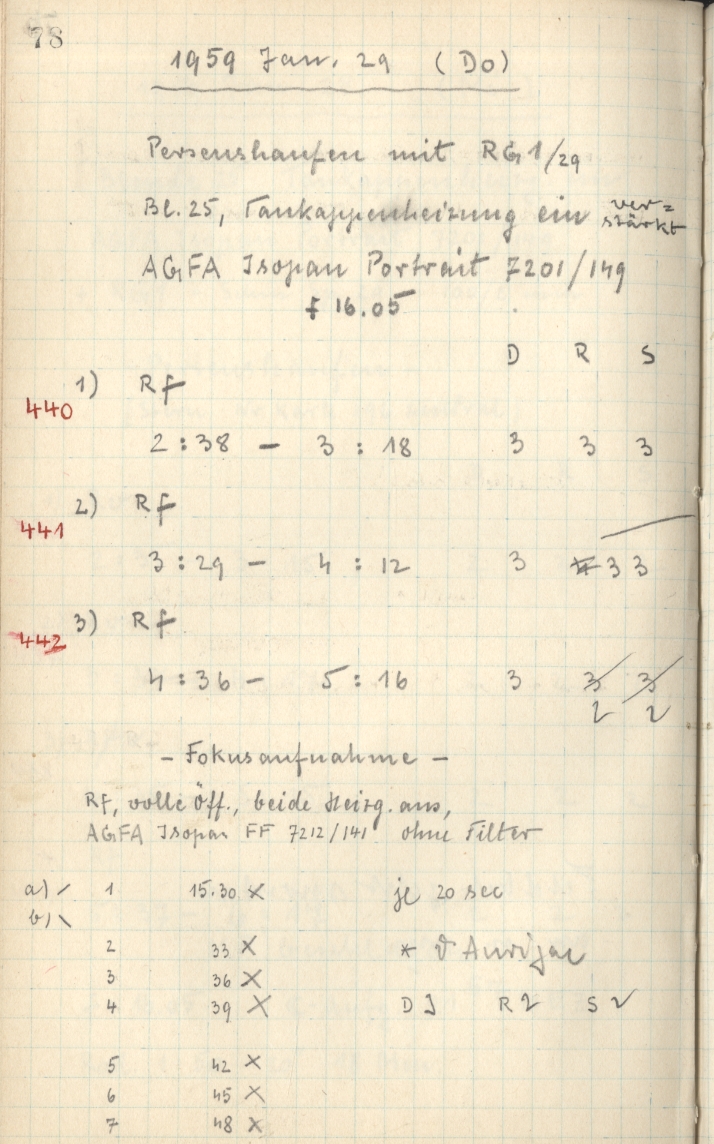 78
1959 Jan. 29 (Do)
Perseushaufen mit RG1/29
Bl. 25, Taukappenheizung ein ver=
stärkt
AGFA Isopan Portrait 7201/149
f 16.05
D R S
1) Rf
440
2:38 - 3:18 3 3 3
2) Rf
441
3:29 - 4:12 3 3 3
3) Rf
442
4:36 - 5:16 3 3 3
2 2
- Fokusaufnahme -
Rf, volle Öff., beide Heizg. aus,
AGFA Isopan FF 7212/141 ohne Filter
a) / 1 15.30 x je 20 sec
b) \
2 33 x * ϑ Aurigae
3 36 x
4 39 x D 3 R 2 S 2
5 42 x
6 45 x
7 48 x